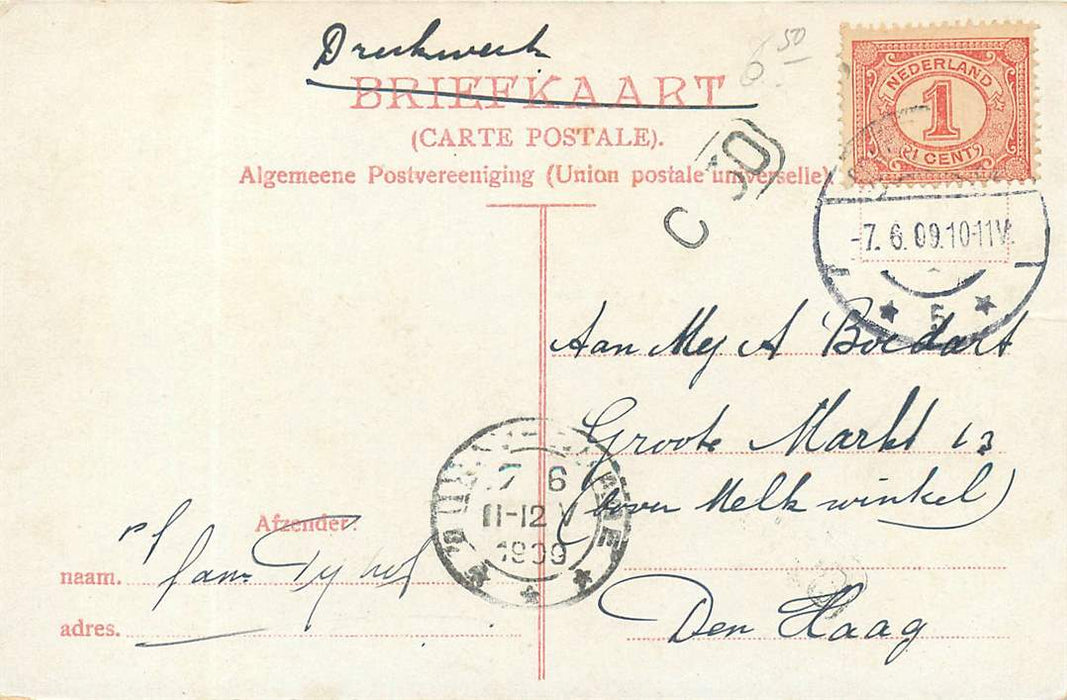 Drukwerk
6 50
BRIEFKAART
(CARTE POSTALE).
Algemeene Postvereeniging (Union postale universelle).
NEDERLAND
1
1 CENT
-7.6.09.10-11V.
5
C
50
Aan Mej A Boedart
Groote Markt 13
(boven Melk winkel)
Den Haag
7 6
11-12 V
1909
Afzender:
naam.
adres.